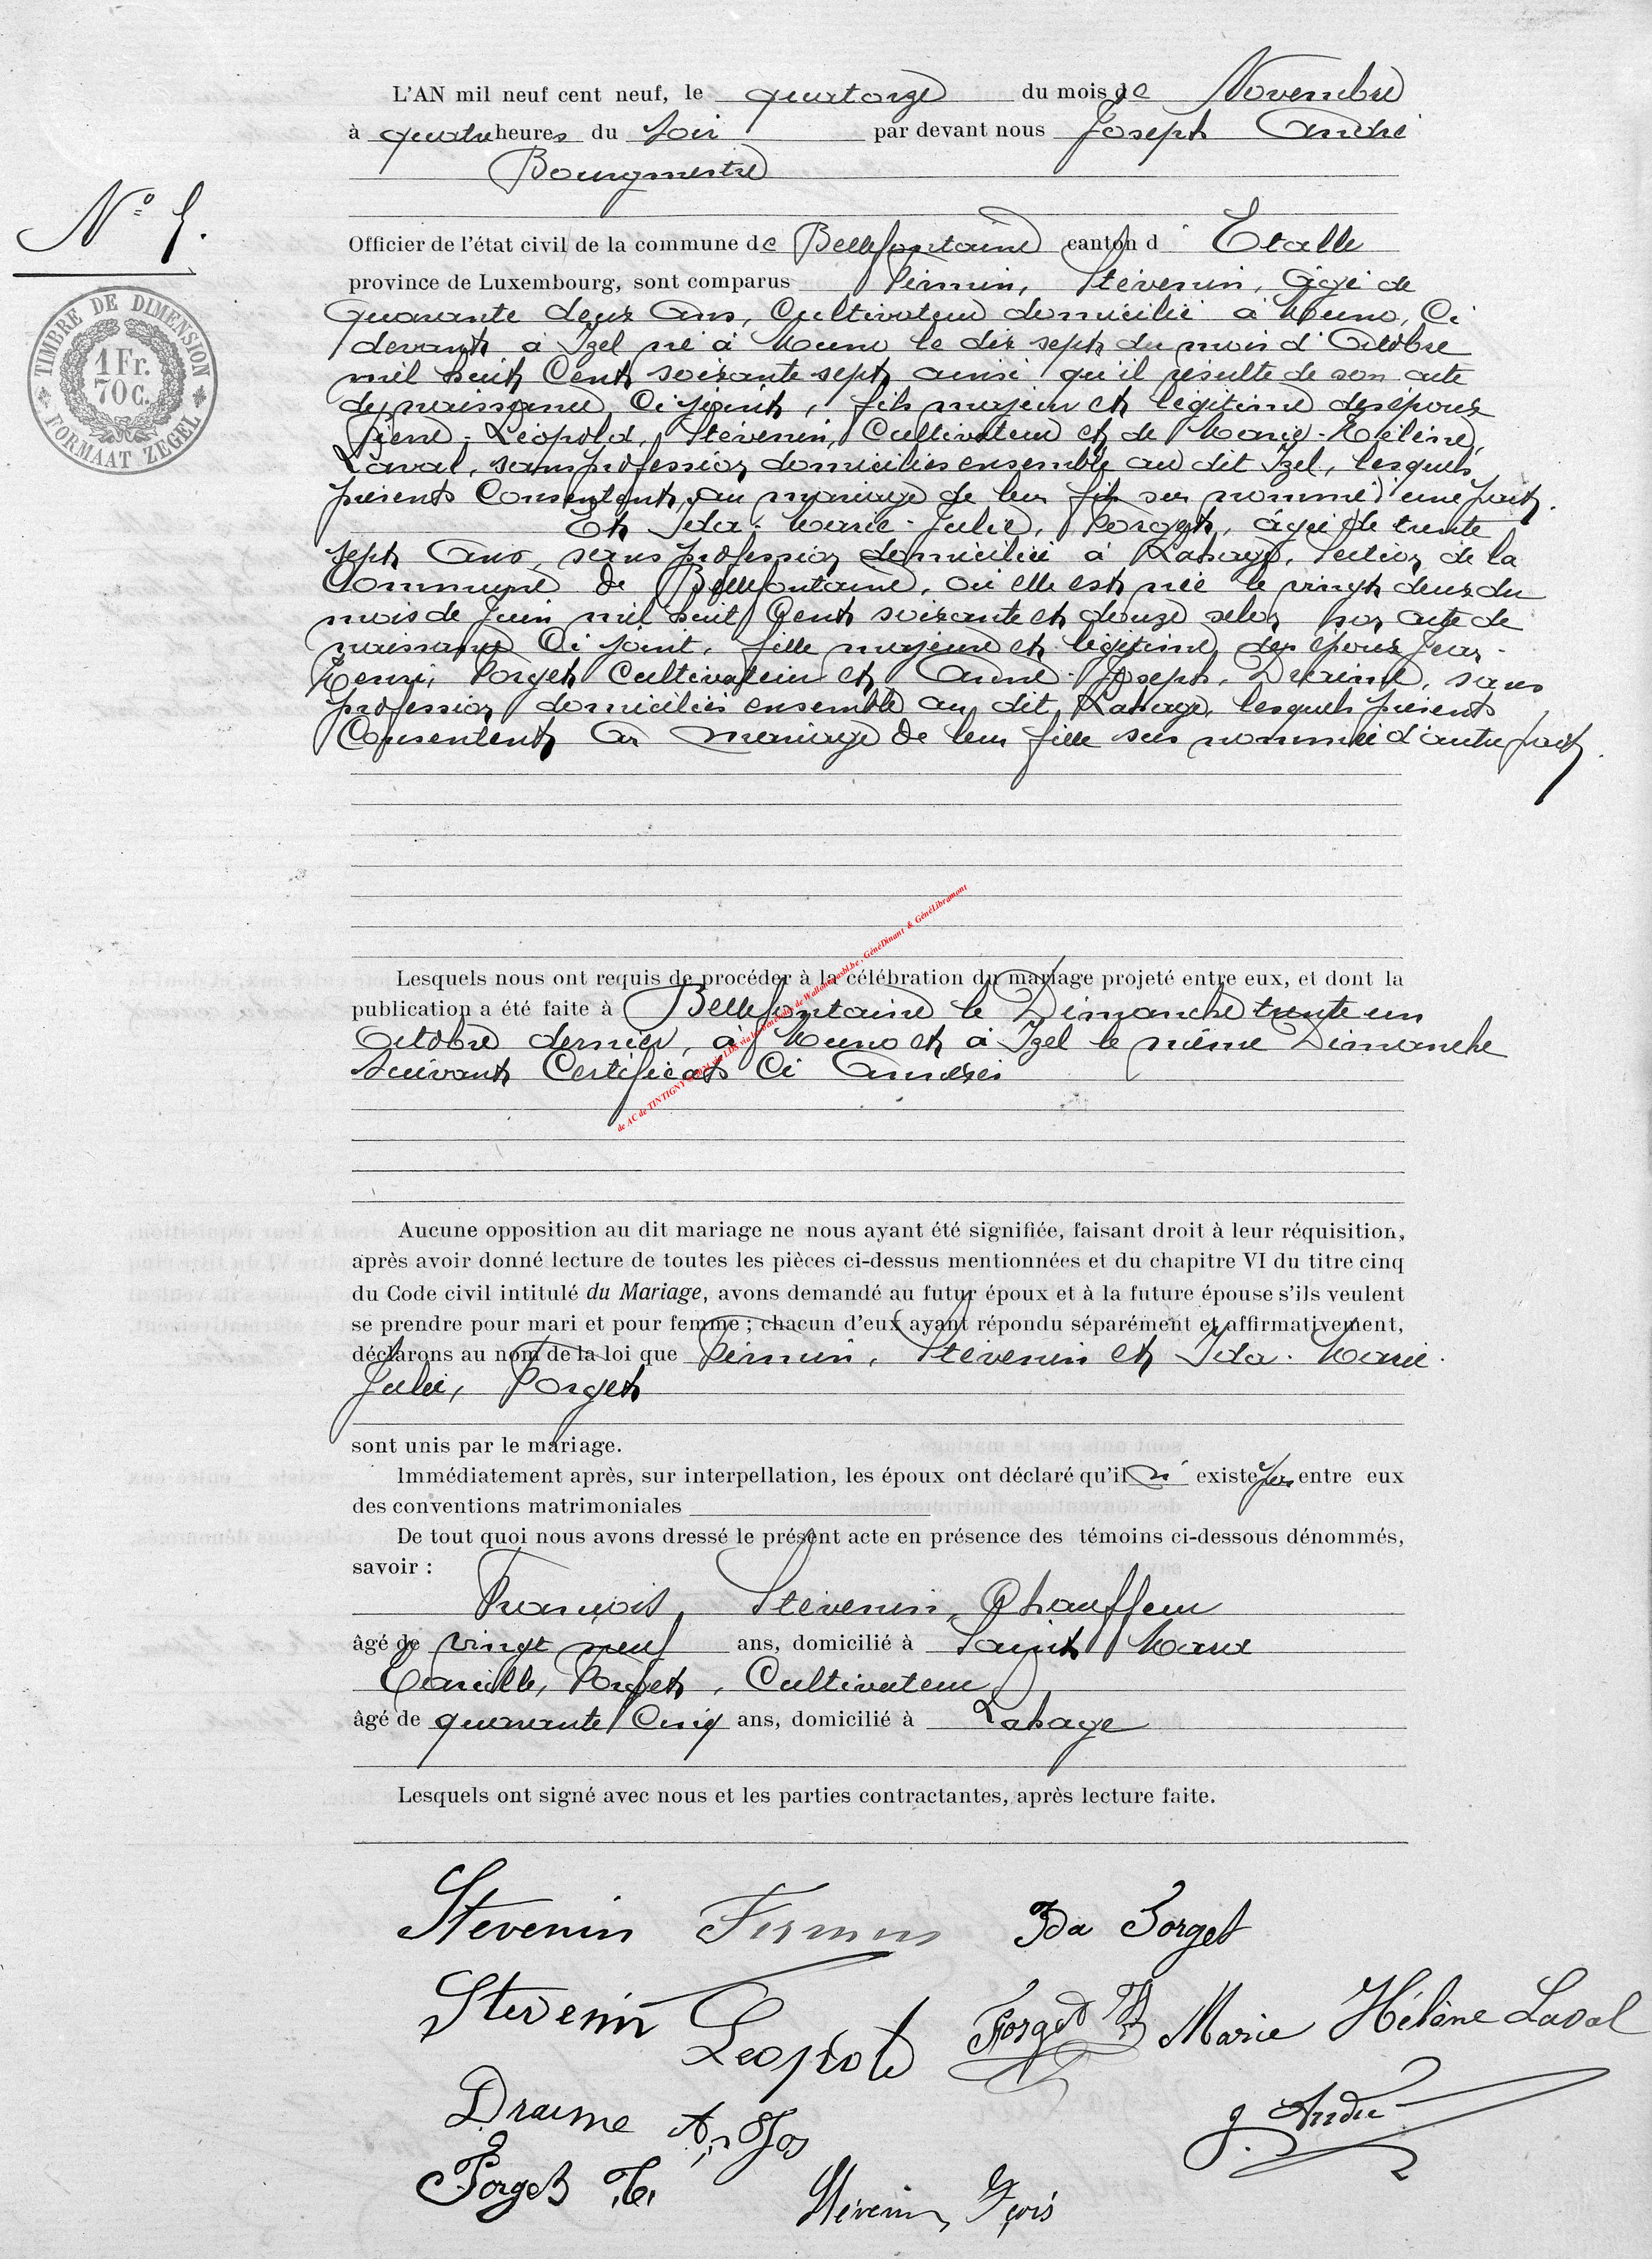 L'AN mil neuf cent neuf, le quatorze du mois de Novembre
à quatre heures du soir par devant nous Joseph André
Bourgmestre
N° 5.
Officier de l'état civil de la commune de Bellefontaine canton d' Etalle
province de Luxembourg, sont comparus Firmin, Stévenin, âgé de
quarante deux ans, Cultivateur domicilié à Muno, Ci
devant à Izel né à Muno le dix sept du mois d'Octobre
mil huit Cent soixante sept ainsi qu'il résulte de son acte
de naissance Ci joint, fils majeur et légitime des époux
Pierre-Léopold, Stévenin, Cultivateur et de Marie-Hélène,
Laval, sans profession domiciliés ensemble au dit Izel, lesquels
présents Consentent au mariage de leur fils sus nommé d'une part.
Et Ida-Marie-Julie, Forget, âgée de trente
sept Ans, sans profession domiciliée à Lahage, section de la
Commune de Bellefontaine, où elle est née le vingt deux du
mois de Juin mil huit Cent soixante et douze selon son acte de
naissance Ci joint, fille majeure et légitime des époux Jean-
Henri, Forget Cultivateur et Anne-Joseph, Draime, sans
profession domiciliés ensemble au dit Lahage, lesquels présents
Consentent au mariage de leur fille sus nommée d'autre part.
TIMBRE DE DIMENSION
1 Fr.
70 c.
FORMAAT ZEGEL
Lesquels nous ont requis de procéder à la célébration du mariage projeté entre eux, et dont la
publication a été faite à Bellefontaine le Dimanche trente un
Octobre dernier, à Muno et à Izel le même Dimanche
suivant Certificats Ci Annexés
Aucune opposition au dit mariage ne nous ayant été signifiée, faisant droit à leur réquisition,
après avoir donné lecture de toutes les pièces ci-dessus mentionnées et du chapitre VI du titre cinq
du Code civil intitulé du Mariage, avons demandé au futur époux et à la future épouse s'ils veulent
se prendre pour mari et pour femme ; chacun d'eux ayant répondu séparément et affirmativement,
déclarons au nom de la loi que Firmin, Stévenin et Ida-Marie-
Julie, Forget
sont unis par le mariage.
Immédiatement après, sur interpellation, les époux ont déclaré qu'il n' existe pas entre eux
des conventions matrimoniales
De tout quoi nous avons dressé le présent acte en présence des témoins ci-dessous dénommés,
savoir :
François, Stévenin, Chauffeur
âgé de vingt neuf ans, domicilié à Saint Mard
Camille, Forget, Cultivateur
âgé de quarante Cinq ans, domicilié à Lahage
Lesquels ont signé avec nous et les parties contractantes, après lecture faite.
Stevenin Firmin Ida Forget
Stevenin Leopold Forget Marie Hélène Laval
Draime An Jos J. André
Forget Stévenin Fçois